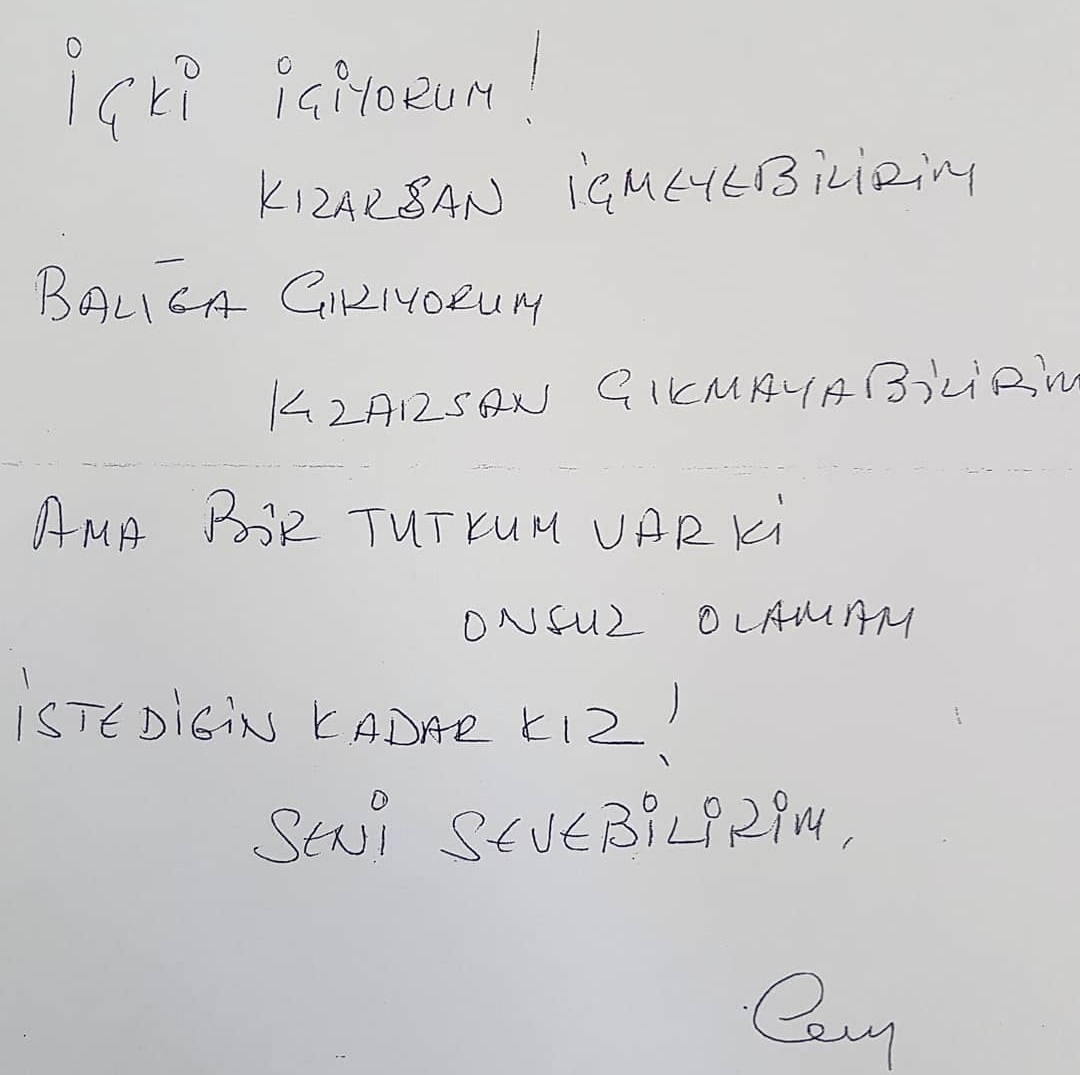 İÇKİ İÇİYORUM!
KIZARSAN İÇMEYEBİLİRİM
BALIĞA ÇIKIYORUM
KIZARSAN ÇIKMAYABİLİRİM
AMA BİR TUTKUM VAR Kİ
ONSUZ OLAMAM
İSTEDİGİN KADAR KIZ!
SENİ SEVEBİLİRİM,
Cem